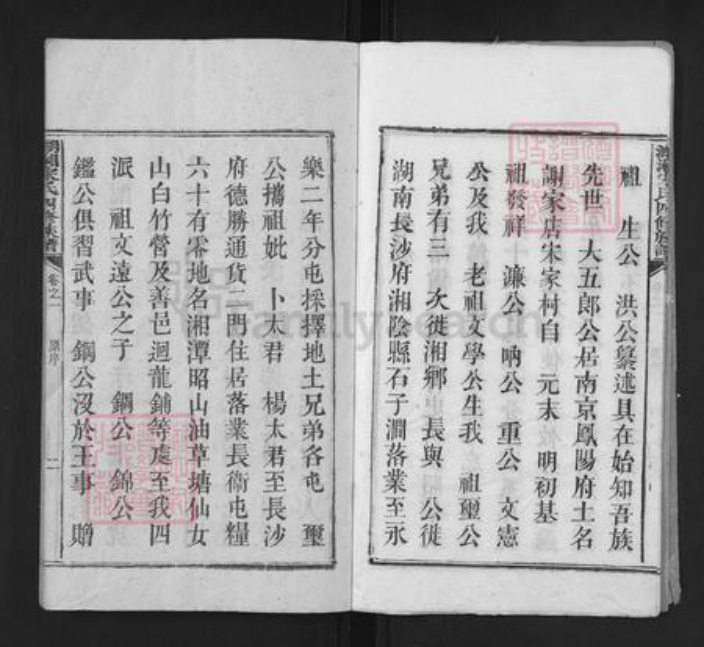 祖 生公 洪公纂述具在始知吾族
先世 大五郎公居南京鳳陽府土名
謝家店宋家村自 元末 明初基
祖發祥 濂公 吶公 重公 文憲
公及我 老祖文學公生我 祖璽公
兄弟有三 次徙湘鄉 長與 公徙
湖南長沙府湘陰縣石子澗落業至永
樂二年分屯採擇地土兄弟各屯 璽
公攜祖妣 卜太君 楊太君至長沙
府德勝通貨二門住居落業長衛屯糧
六十有零地名湘潭昭山油草塘仙女
山白竹營及善邑迴龍鋪等處至我四
派 祖文遠公之子 鋼公 錦公
鑑公俱習武事 鋼公沒於王事 贈
氏四修族譜 卷之一 原序 二
FamilySearch